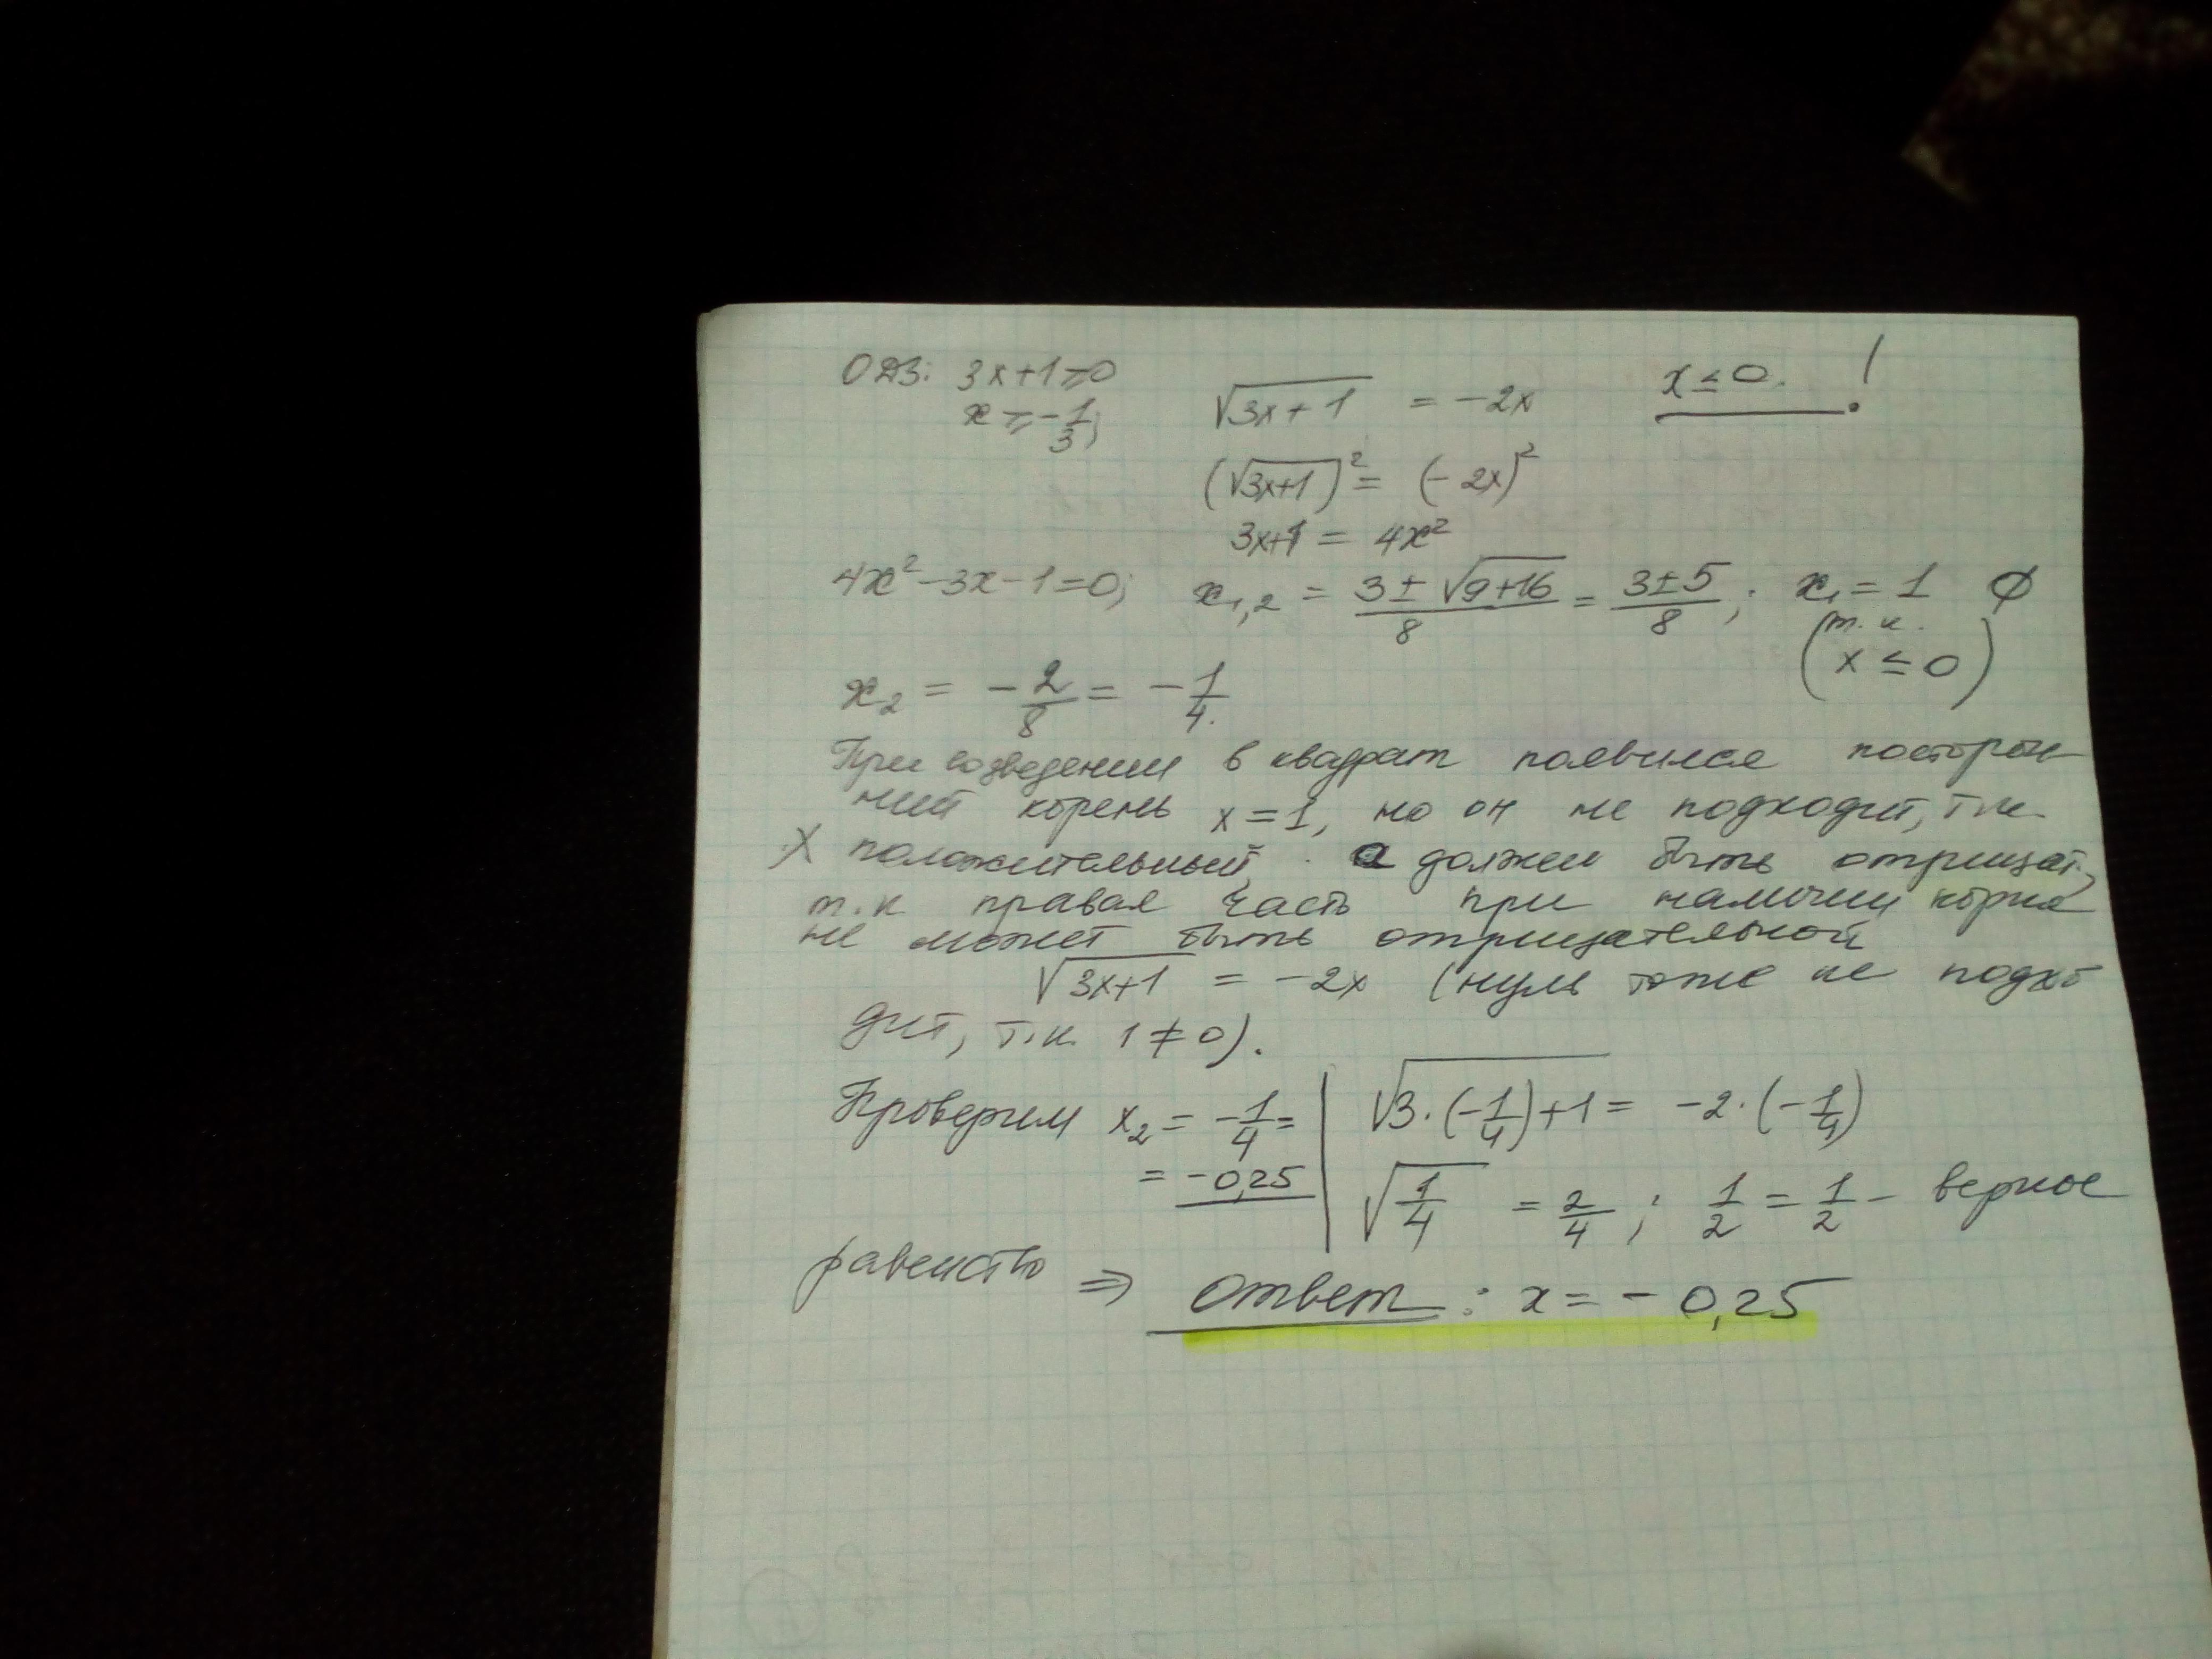 ОДЗ: 3x+1⩾0
x ⩾ -1/3;
√(3x+1) = -2x
x ≤ 0. !
(√(3x+1))² = (-2x)²
3x+1 = 4x²
4x²-3x-1=0; x₁,₂ = (3 ± √(9+16))/8 = (3±5)/8; x₁ = 1 ∅
(т.к. x ≤ 0)
x₂ = -2/8 = -1/4.
При возведении в квадрат появился посторон
ний корень x=1, но он не подходит, т.к.
X положительный, а должен быть отрицат.,
т.к правая часть при наличии корня
не может быть отрицательной
√(3x+1) = -2x (нуль тоже не подхо
дит, т.к. 1≠0).
Проверим x₂ = -1/4 =
= -0,25
√(3·(-1/4)+1) = -2·(-1/4)
√(1/4) = 2/4; 1/2 = 1/2 - верное
равенство ⇒ ответ: x = -0,25